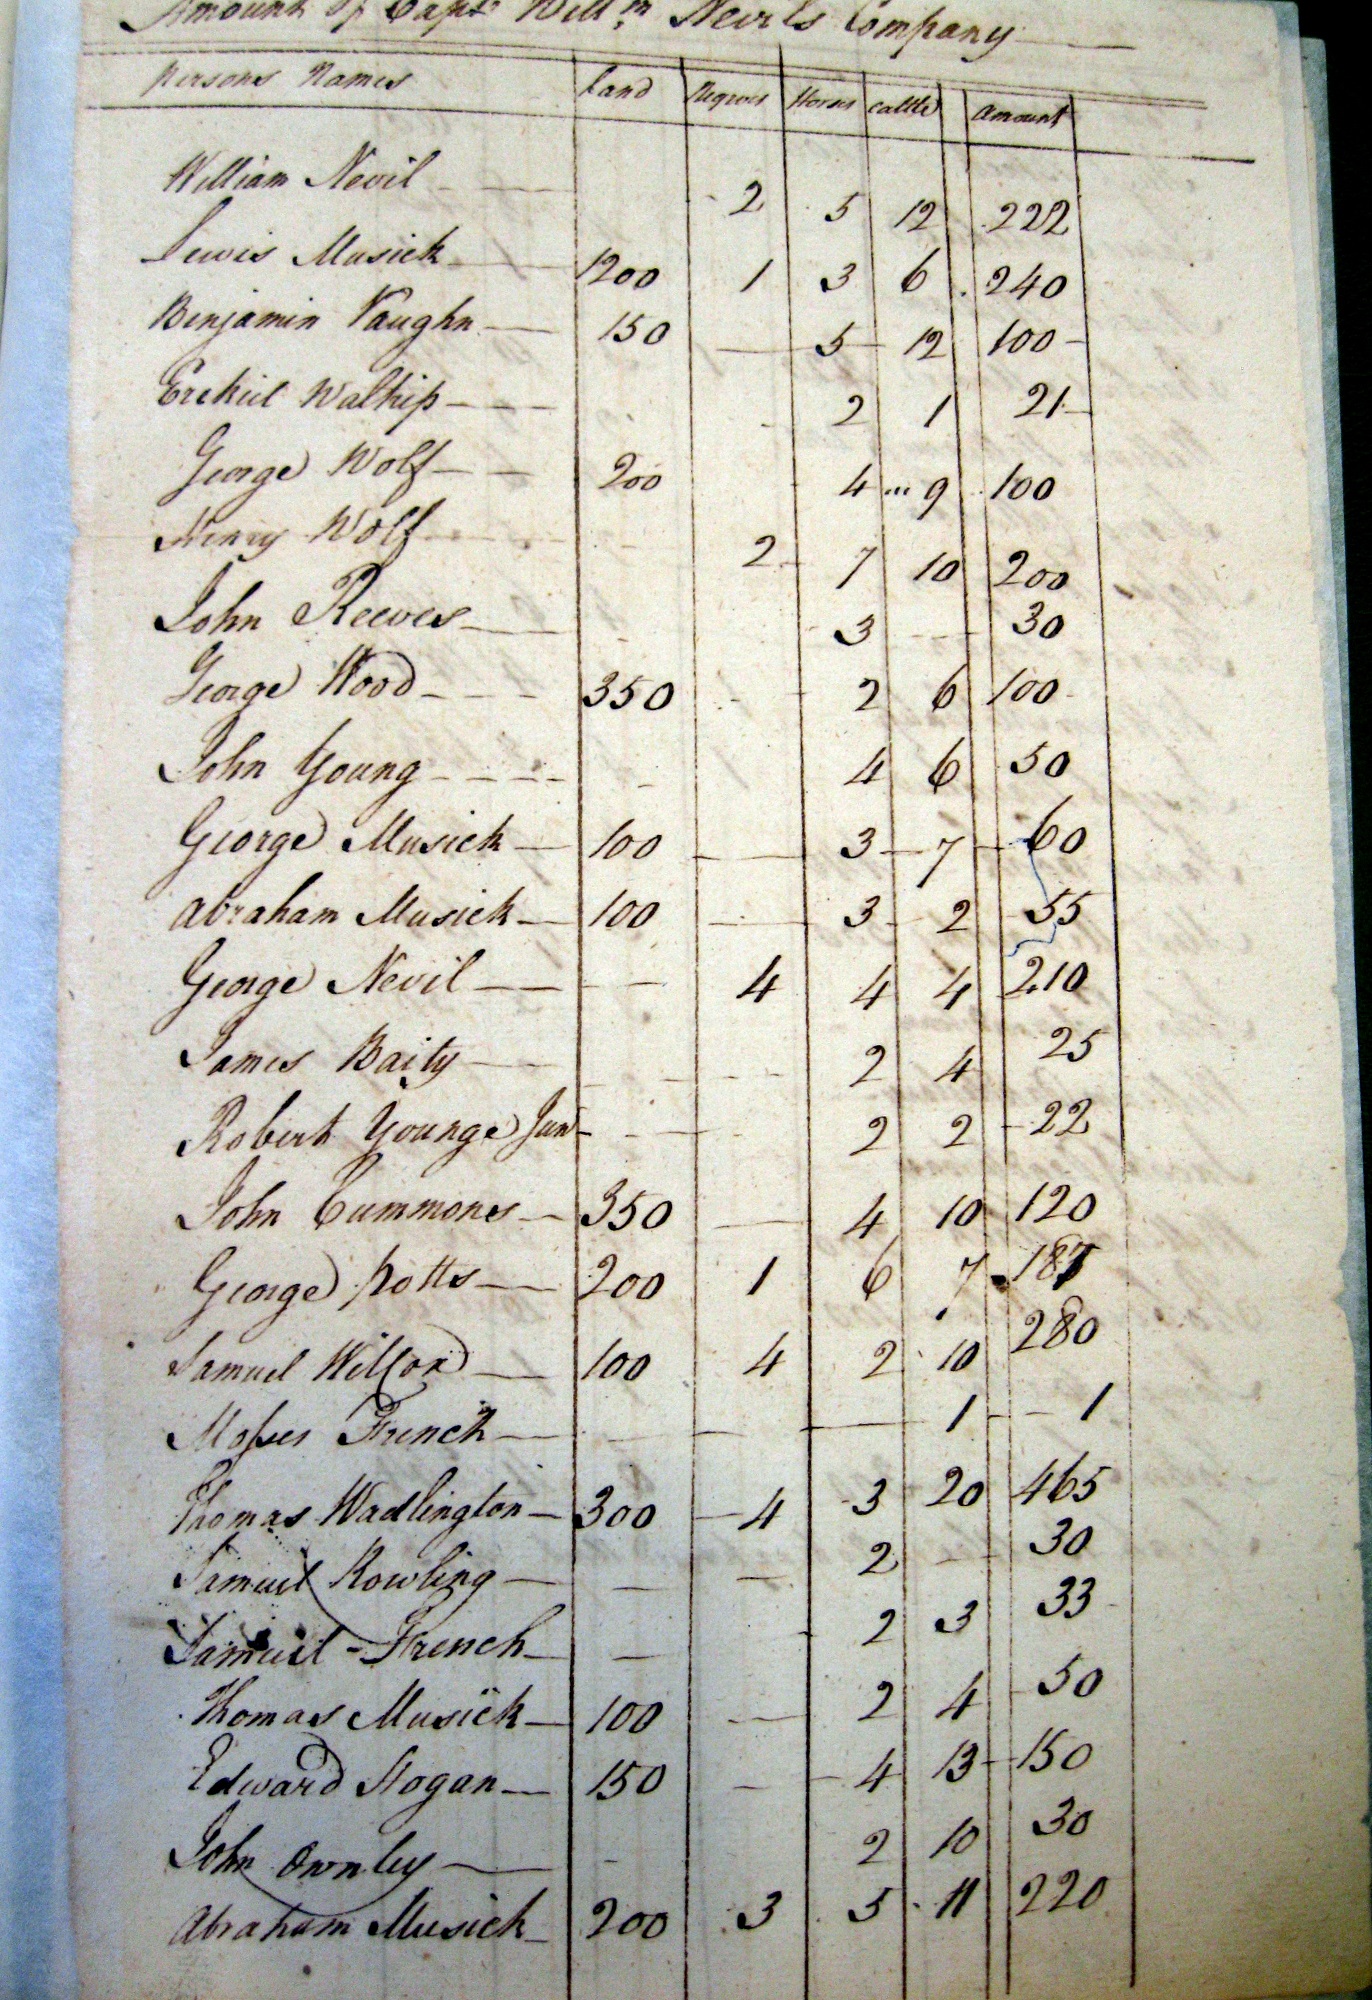 Amount of Capt. Willm. Nevils Company
Persons Names Land Negroes Horses Cattle Amount
William Nevil 2 5 12 222
Lewis Musick 1200 1 3 6 240
Benjamin Vaughn 150 5 12 100
Ezekiel Waltrip 2 1 21
George Wolf 200 4 9 100
Henry Wolf 2 7 10 200
John Reeves 3 30
George Wood 350 2 6 100
John Young 4 6 50
George Musick 100 3 7 60
Abraham Musick 100 3 2 55
George Nevil 4 4 4 210
James Baity 2 4 25
Robert Younge Junr 2 2 22
John Cummons 350 4 10 120
George Potts 200 1 6 7 187
Samuel Wilson 100 4 2 10 280
Moses French 1 1
Thomas Wadlington 300 4 3 20 465
Samuel Rowling 2 30
Samuel French 2 3 33
Thomas Musick 100 2 4 50
Edward Hogan 150 4 13 150
John Ownley 2 10 30
Abraham Musick 200 3 5 11 220